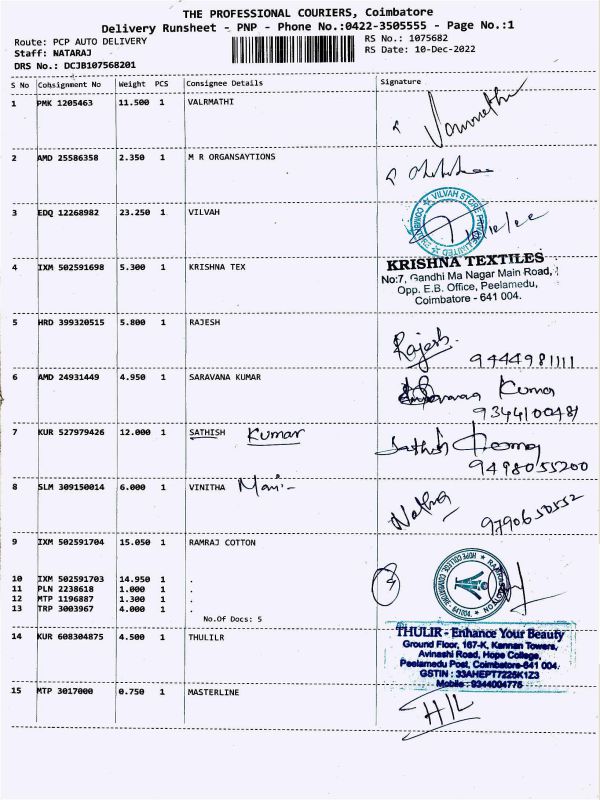 THE PROFESSIONAL COURIERS, Coimbatore
Delivery Runsheet - PNP - Phone No.:0422-3505555 - Page No.:1
Route: PCP AUTO DELIVERY
RS No.: 1075682
Staff: NATARAJ
RS Date: 10-Dec-2022
DRS No.: DCJB107568201
S No Cohsignment No Weight PCS Consignee Details Signature
1 PMK 1205463 11.500 1 VALRMATHI
2 AMD 25586358 2.350 1 M R ORGANSAYTIONS
3 EDQ 12268982 23.250 1 VILVAH
VILVAH STORE PRIVATE LIMITED
4 IXM 502591698 5.300 1 KRISHNA TEX
KRISHNA TEXTILES
No:7, Gandhi Ma Nagar Main Road,
Opp. E.B. Office, Peelamedu,
Coimbatore - 641 004.
5 HRD 399320515 5.800 1 RAJESH
Rajesh.
9444981111
6 AMD 24931449 4.950 1 SARAVANA KUMAR
Kumar
9344100481
7 KUR 527979426 12.000 1 SATHISH Kumar
Sathish
9498055200
8 SLM 309150014 6.000 1 VINITHA Mani-
9790650552
9 IXM 502591704 15.050 1 RAMRAJ COTTON
10 IXM 502591703 14.950 1 .
11 PLN 2238618 1.000 1 .
12 MTP 1196887 1.300 1 .
13 TRP 3003967 4.000 1 .
No.Of Docs: 5
14 KUR 608304875 4.500 1 THULILR
THULIR - Enhance Your Beauty
Ground Floor, 167-K, Kannan Towers,
Avinashi Road, Hope College,
Peelamedu Post, Coimbatore-641 004.
GSTIN : 33AHEPT7225K1Z3
Mobile : 9344004775
15 MTP 3017000 0.750 1 MASTERLINE